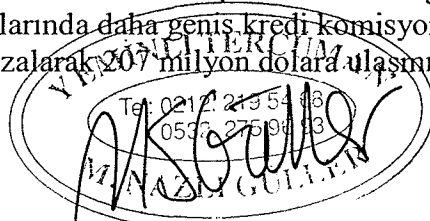 larında daha geniş kredi komisyon
zalarak 207 milyon dolara ulaşmı
YEMİNLİ TERCÜMAN
Tel: 0212 219 54 68
0533 275 96 93
M. NAZLI GÜLLER